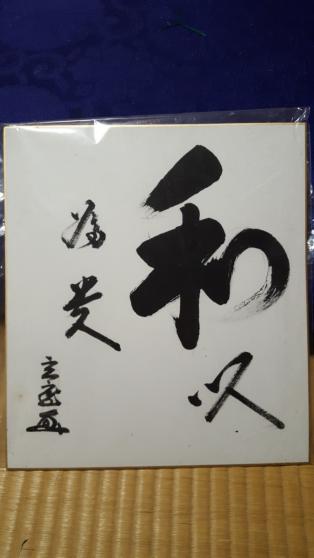 和以
為貴